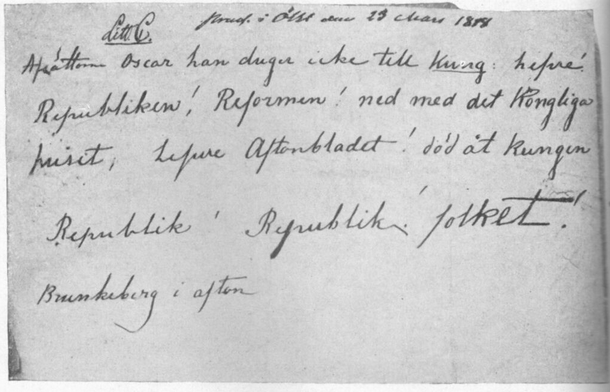 Litt. C.
i ÖEt den 23 Mars 1848
Afsättom Oscar han duger icke till Kung: lefve!
Republiken! Reformen! ned med det Kongliga
huset, Lefve Aftonbladet! död åt Kungen
Republik! Republik! folket!
Brunkeberg i afton